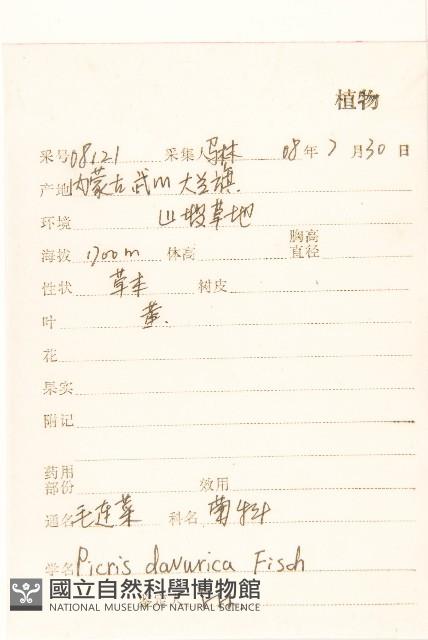 植物
采号 08121 采集人 马林 08 年 7 月 30 日
产地 内蒙古武川 大兰旗
环境 山坡草地
海拔 1700m 体高 胸高直径
性状 草本 树皮
叶 黄
花
果实
附记
药用部份 效用
通名 毛连菜 科名 菊科
学名 Picris davurica Fisch
國立自然科學博物館
NATIONAL MUSEUM OF NATURAL SCIENCE